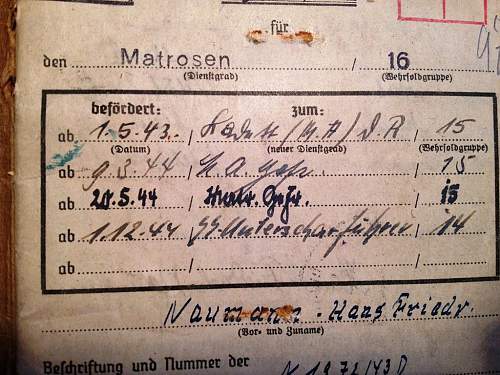 für
den Matrosen / 16
(Dienstgrad) (Wehrsoldgruppe)
befördert: zum:
ab 1.5.43. / Kadett / (M.A) / d.R / 15
(Datum) (neuer Dienstgrad) (Wehrsoldgruppe)
ab 9.3.44 / M.A. Gefr. / 15
ab 20.5.44 / Matr. Gefr. / 15
ab 1.12.44 / SS-Unterscharführer / 14
ab / /
Naumann - Hans Friedr.
(Vor- und Zuname)
Beschriftung und Nummer der
N 1972/43 D